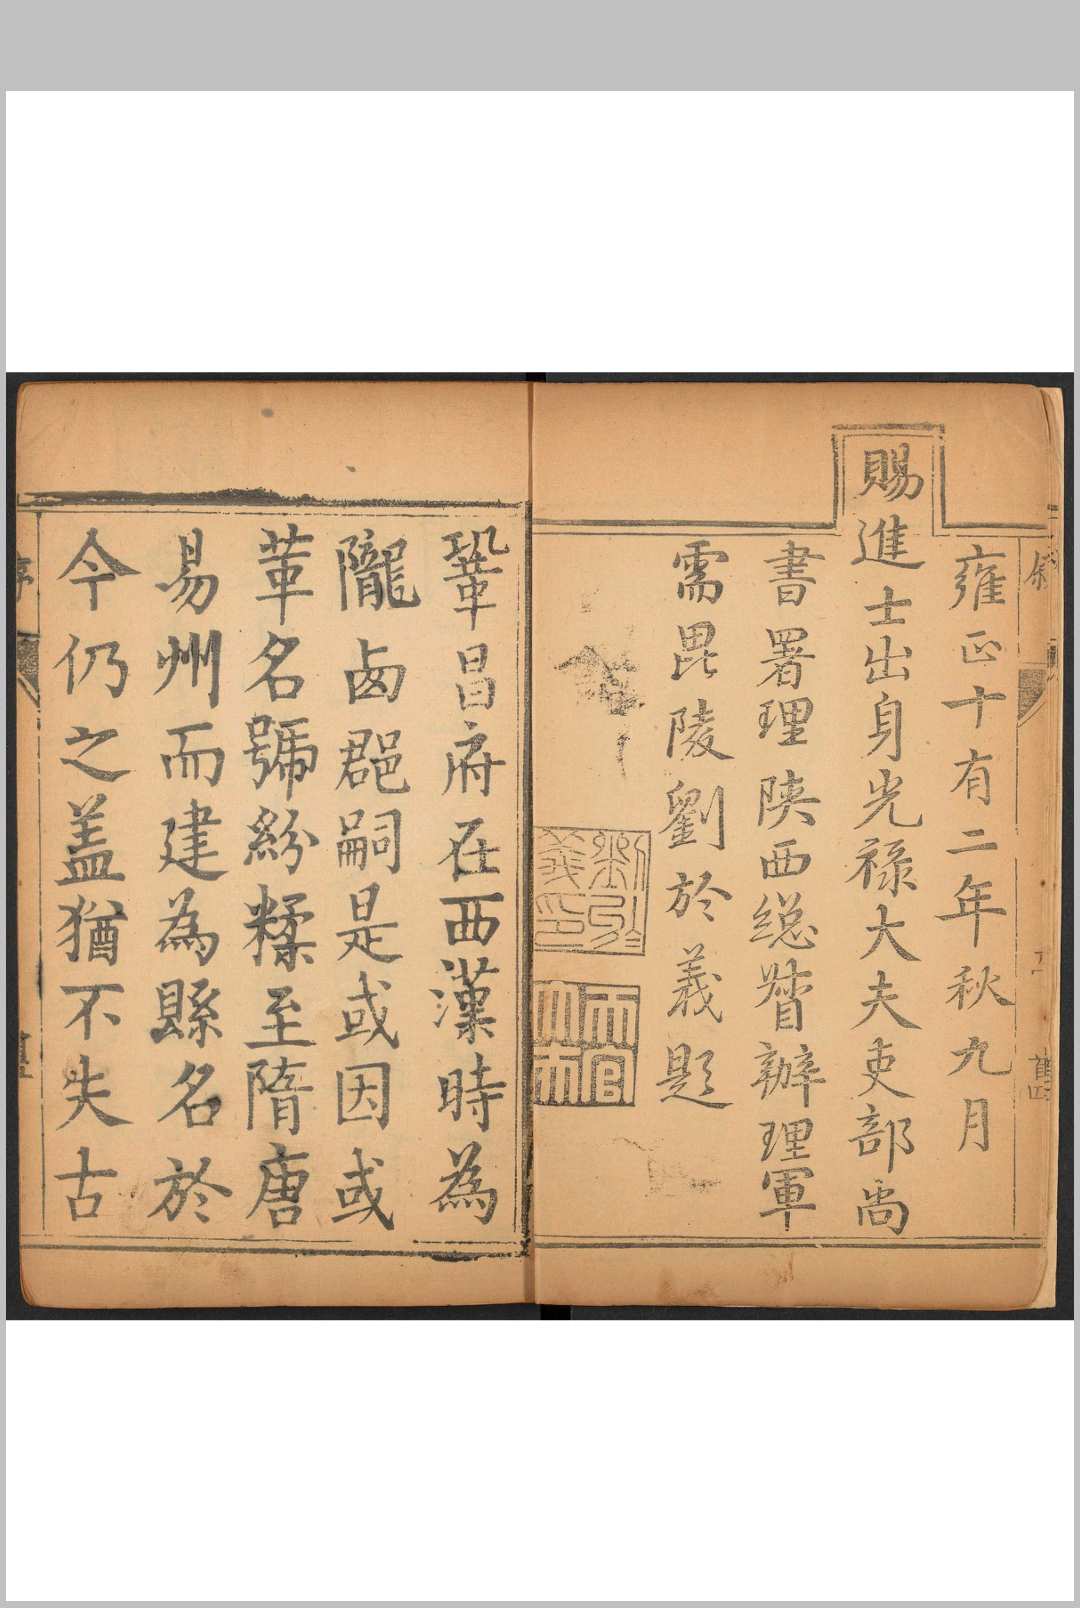 雍正十有二年秋九月
賜進士出身光祿大夫吏部尚
書署理陝西緫督辦理軍
需毘陵劉於義題
鞏昌府在西漢時為
隴西郡嗣是或因或
革名號紛糅至隋唐
易州而建為縣名於
今仍之盖猶不失古